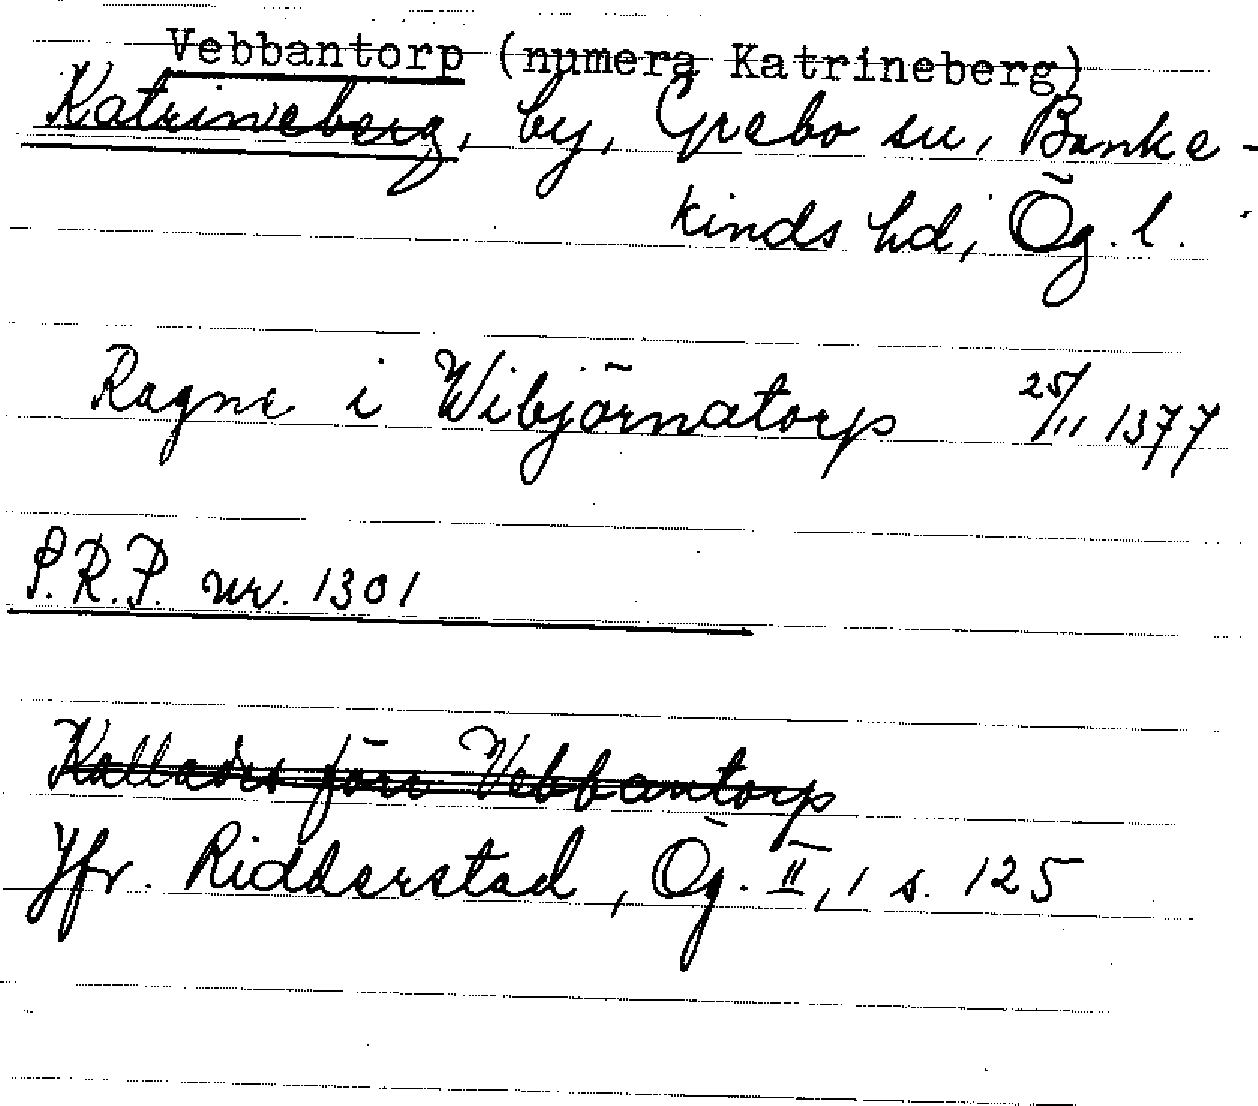 Vebbantorp (numera Katrineberg)
Katrineberg, by, Grebo sn, Banke-
kinds hd, Ög. l.
Ragne i Wibjörnatorp 25/11 1377
P.R.P. nr. 1301
Kallades förr Vebbantorp
Jfr. Ridderstad, Ög. II, 1 s. 125